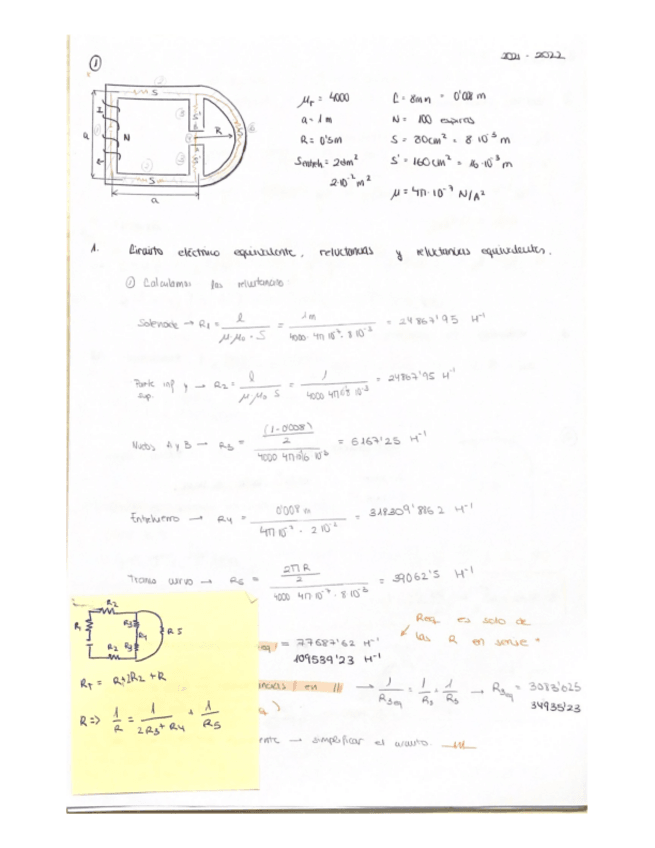 2021 - 2022
1
S
I
N
a
R
S
a
μr = 4000
a = 1 m
R = 0'5m
Sentreh = 2dm²
2·10⁻² m²
l = 8mm = 0'008 m
N = 100 espiras
S = 80cm² = 8 10⁻³ m
S' = 160cm² = 16·10⁻³ m
μ = 4π·10⁻⁷ N/A²
1. Circuito eléctrico equivalente, reluctancias y reluctancias equivalentes.
① Calculamos las reluctancias:
Solenoide → R1 = l / μ·μ₀·S = 1m / 4000·4π 10⁻⁷·8 10⁻³ = 24867'95 H⁻¹
Parte inf y sup. → R2 = l / μ μ₀ S = 1 / 4000 4π 10⁻⁷ 8 10⁻³ = 24867'95 H⁻¹
A y B → R3 = (1-0'008) / 2 / 4000 4π 10⁻⁷ 16 10⁻³ = 6167'25 H⁻¹
Entrehierro → R4 = 0'008 m / 4π 10⁻⁷ · 2 10⁻² = 318309'8862 H⁻¹
Tramo curvo → R5 = 2πR / 2 / 4000 4π 10⁻⁷ · 8 10⁻³ = 39062'5 H⁻¹
R2
R1
R3
R4
R3
R5
R2
RT = R1+2R2 + R
R => 1/R = 1/2R3+R4 + 1/R5
= 77687'62 H⁻¹
109539'23 H⁻¹
Req es solo de
las R en serie
en || → 1/R3eq = 1/R3 + 1/R5 → R3eq = 3083'625
34935'23
→ simplificar el circuito.